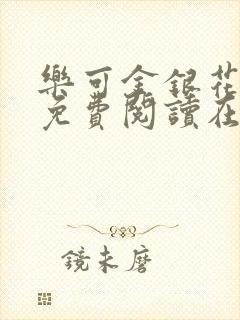 樂可金銀花
免費閱讀在
鏡未磨